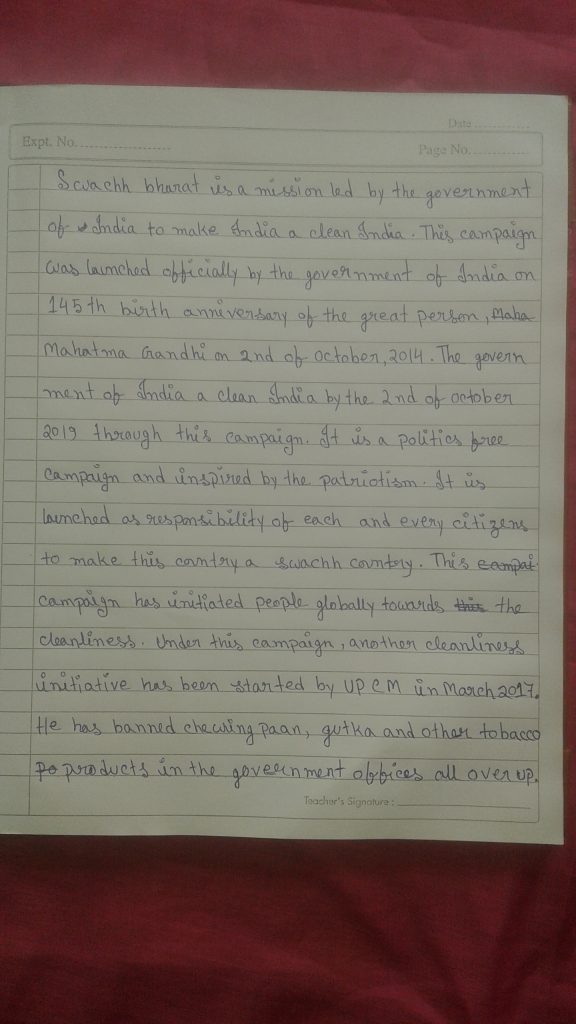 Date ............
Expt. No. ......................
Page No. ..............
Swachh bharat is a mission led by the government
of India to make India a clean India. This campaign
was launched officially by the government of India on
145th birth anniversary of the great person, Maha
Mahatma Gandhi on 2nd of october, 2014. The govern
ment of India a clean India by the 2nd of october
2019 through this campaign. It is a politics free
campaign and inspired by the patriotism. It is
launched as responsibility of each and every citizens
to make this country a swachh country. This campai
campaign has initiated people globally towards this the
cleanliness. Under this campaign, another cleanliness
initiative has been started by UP CM in March 2017.
He has banned chewing paan, gutka and other tobacco
po products in the government offices all over up.
Teacher's Signature : ______________